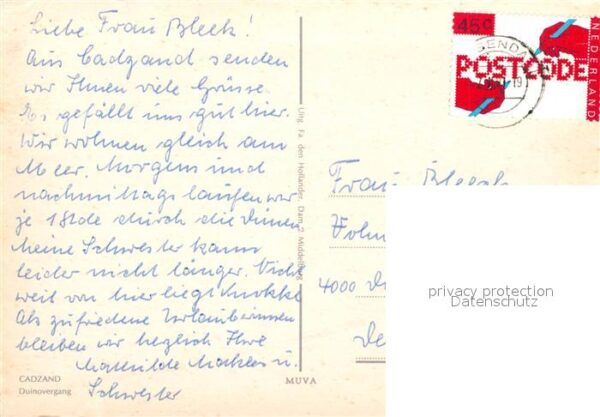 Liebe Frau Bleek!
Aus Cadzand senden
wir Ihnen viele Grüsse.
Es gefällt uns gut hier.
Wir wohnen gleich am
Meer. Morgens und
nachmittags laufen wir
je 1 Stde durch die Dünen
Meine Schwester kann
leider nicht länger. Nicht
weit von hier liegt Knokke
Als zufriedene Urlauberinnen
bleiben wir herzlich Ihre
Mathilde u.
Schwester
CADZAND
Duinovergang
Uitg. Fa. den Hollander, Dam 2 Middelburg
MUVA
45c
POSTCODE
NEDERLAND
Frau
4000
privacy protection
Datenschutz